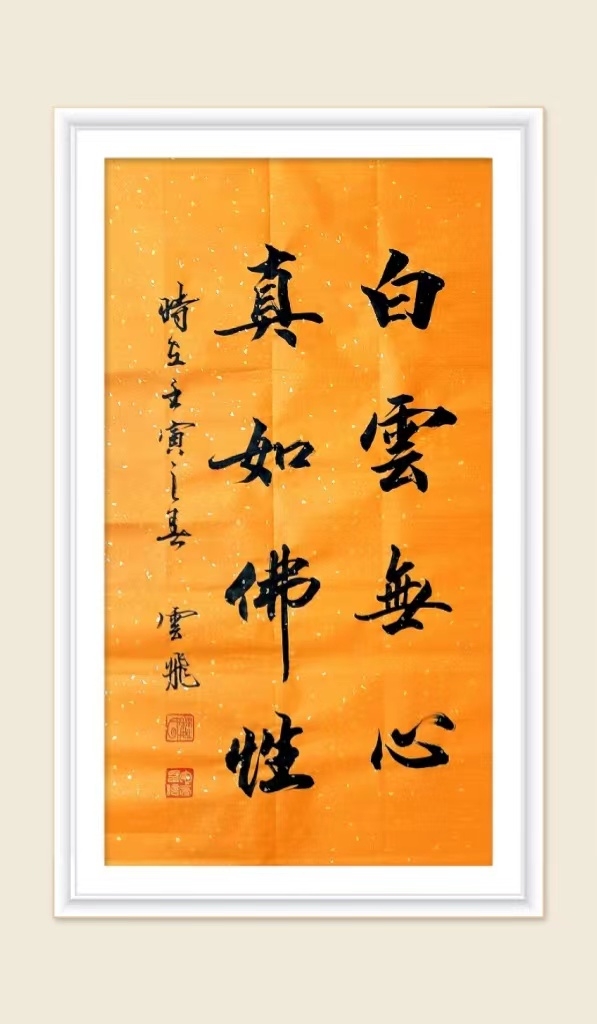 白雲無心
真如佛性
時在壬寅之春 雲飛